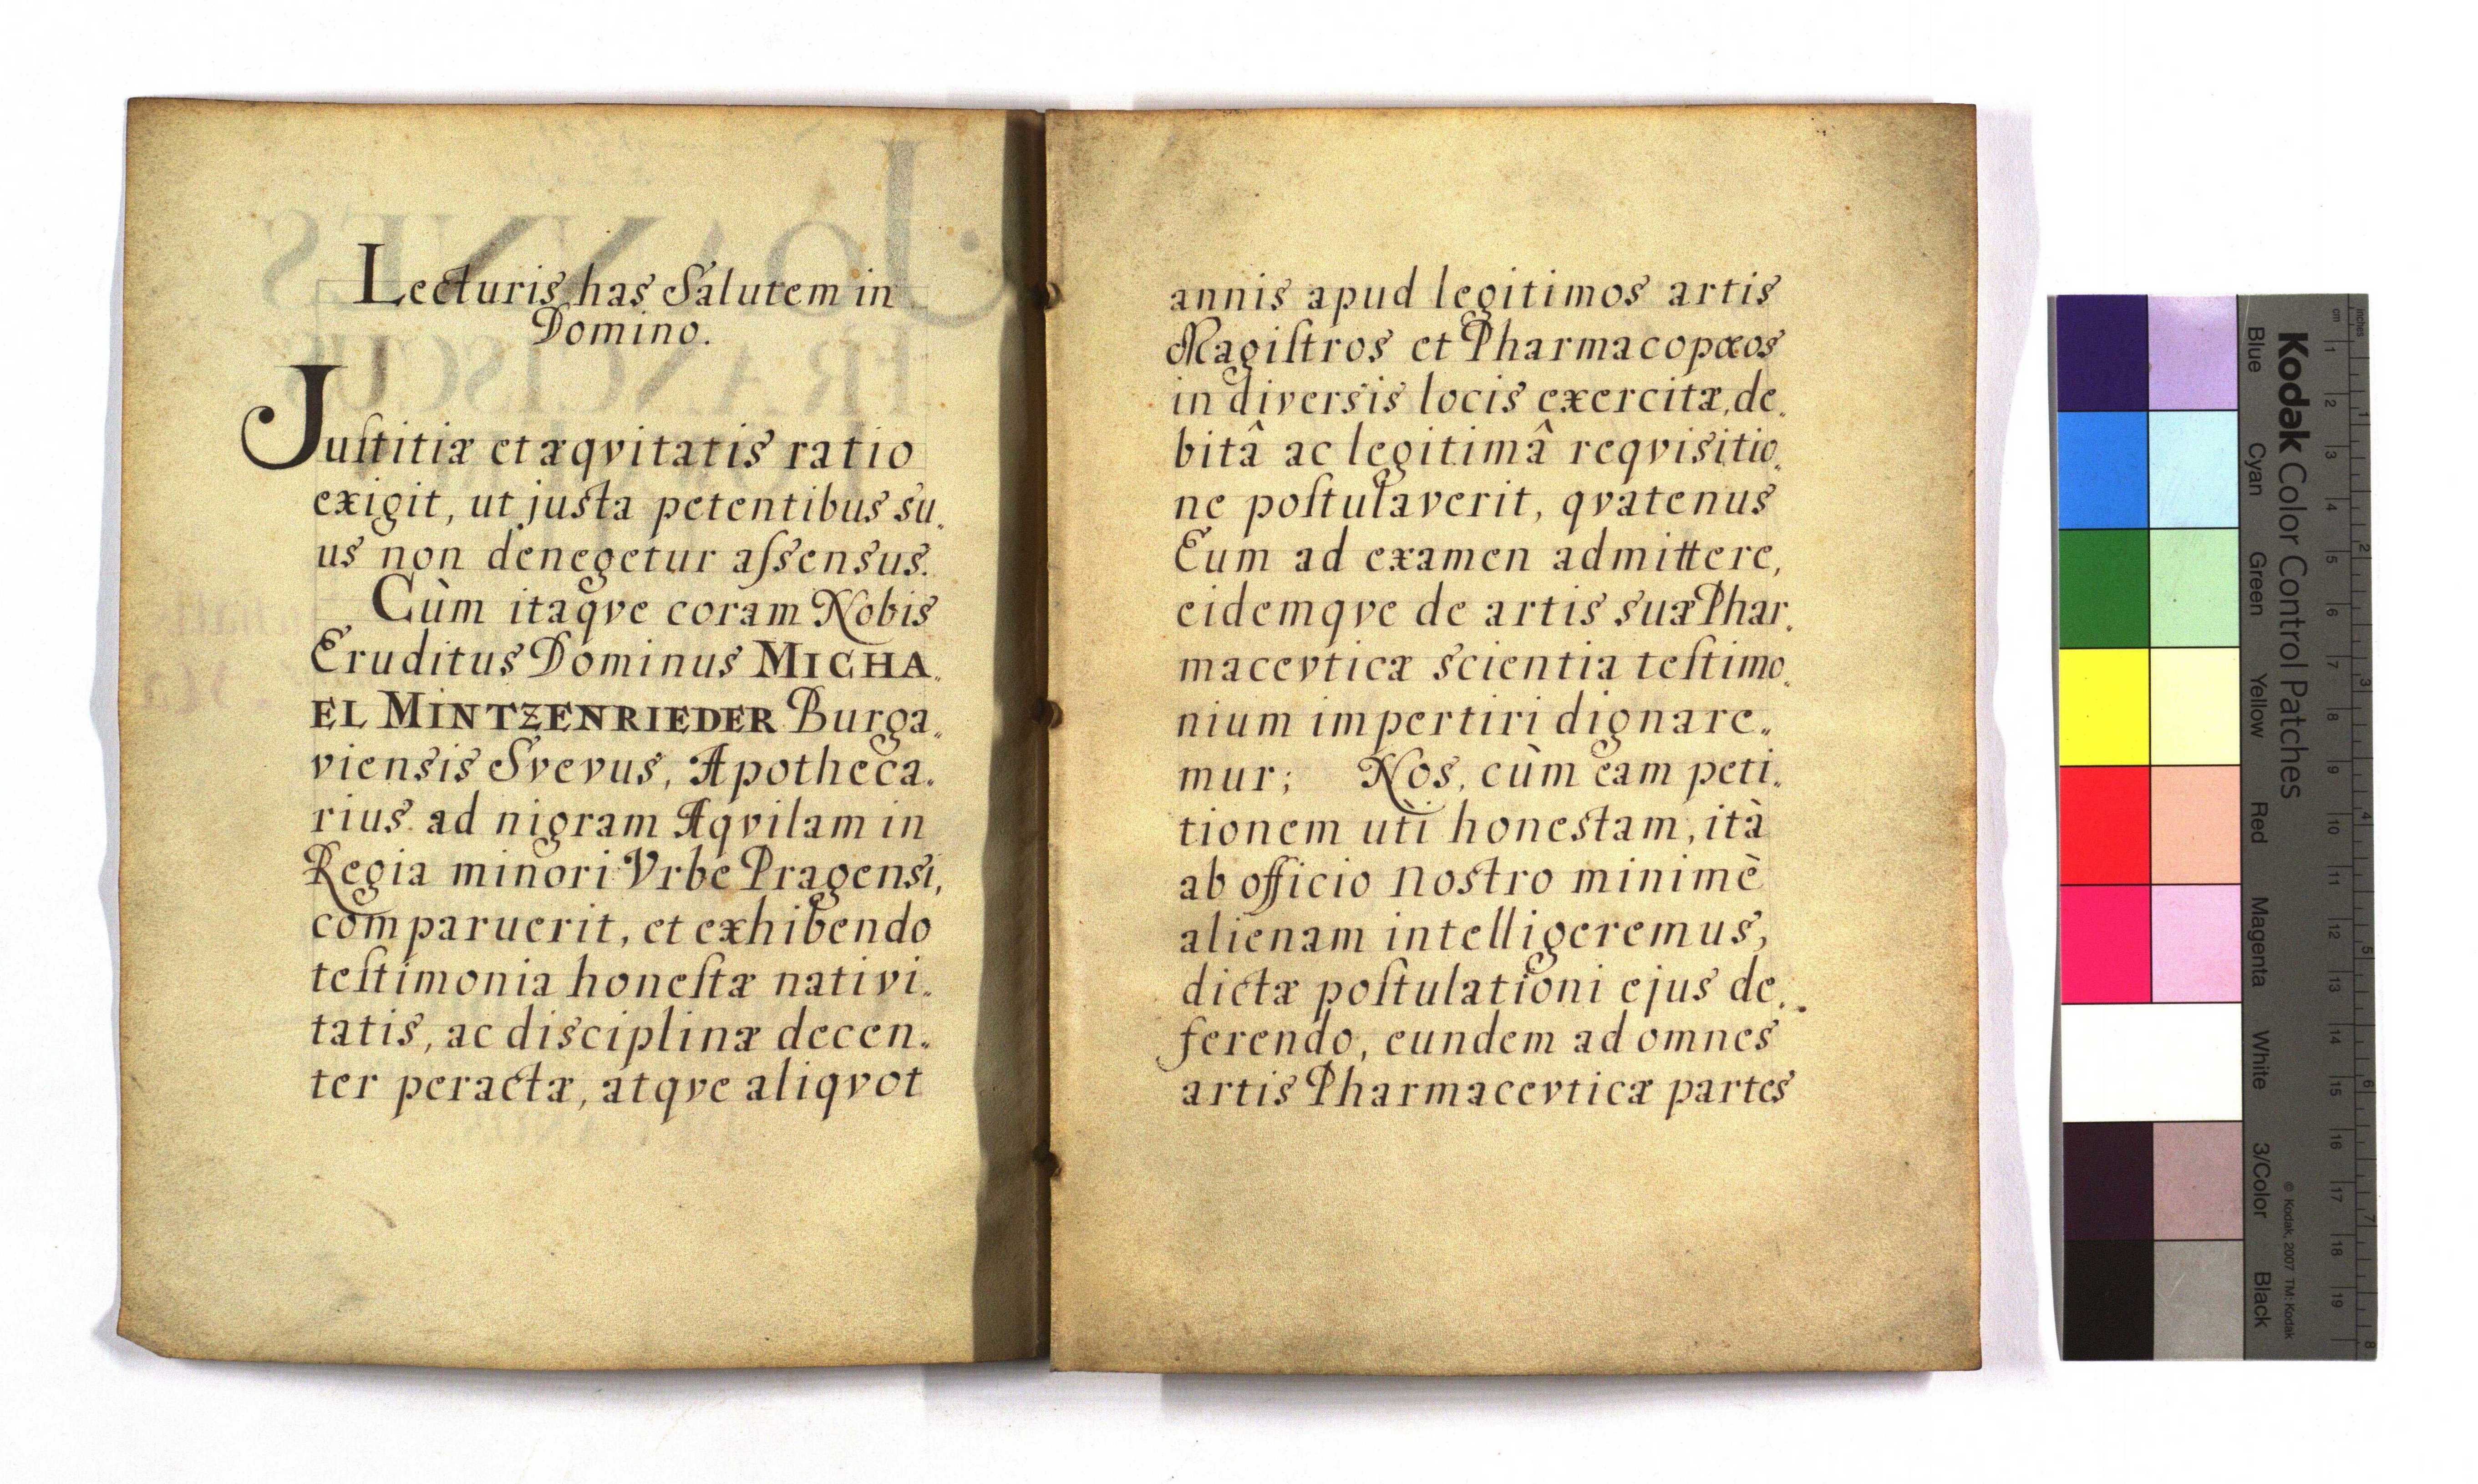 Lecturis has Salutem in
Domino.
Juſtitiæ et æqvitatis ratio
exigit, ut justa petentibus su„
us non denegetur aſsensus.
Cùm itaqve coram Nobis
Eruditus Dominus MICHA„
EL MINTZENRIEDER Burga„
viensis Svevus, Apotheca„
rius ad nigram Aqvilam in
Regia minori Vrbe Pragensi,
comparuerit, et exhibendo
teſtimonia honeſtæ nativi„
tatis, ac disciplinæ decen„
ter peractæ, atqve aliqvot
annis apud legitimos artis
Magiſtros et Pharmacopœos
in diversis locis exercitæ, de„
bitâ ac legitimâ reqvisitio„
ne poſtulaverit, qvatenus
Eum ad examen admittere,
eidemqve de artis suæ Phar„
macevticæ scientia teſtimo„
nium impertiri dignare„
mur; Nos, cùm eam peti„
tionem uti honestam, ità
ab officio nostro minimè
alienam intelligeremus,
dictæ poſtulationi ejus de„
ferendo, eundem ad omnes
artis Pharmacevticæ partes
Kodak Color Control Patches
Blue Cyan Green Yellow Red Magenta White 3/Color Black
© Kodak, 2007 TM: Kodak
inches 1 2 3 4 5 6 7 8
cm 1 2 3 4 5 6 7 8 9 10 11 12 13 14 15 16 17 18 19